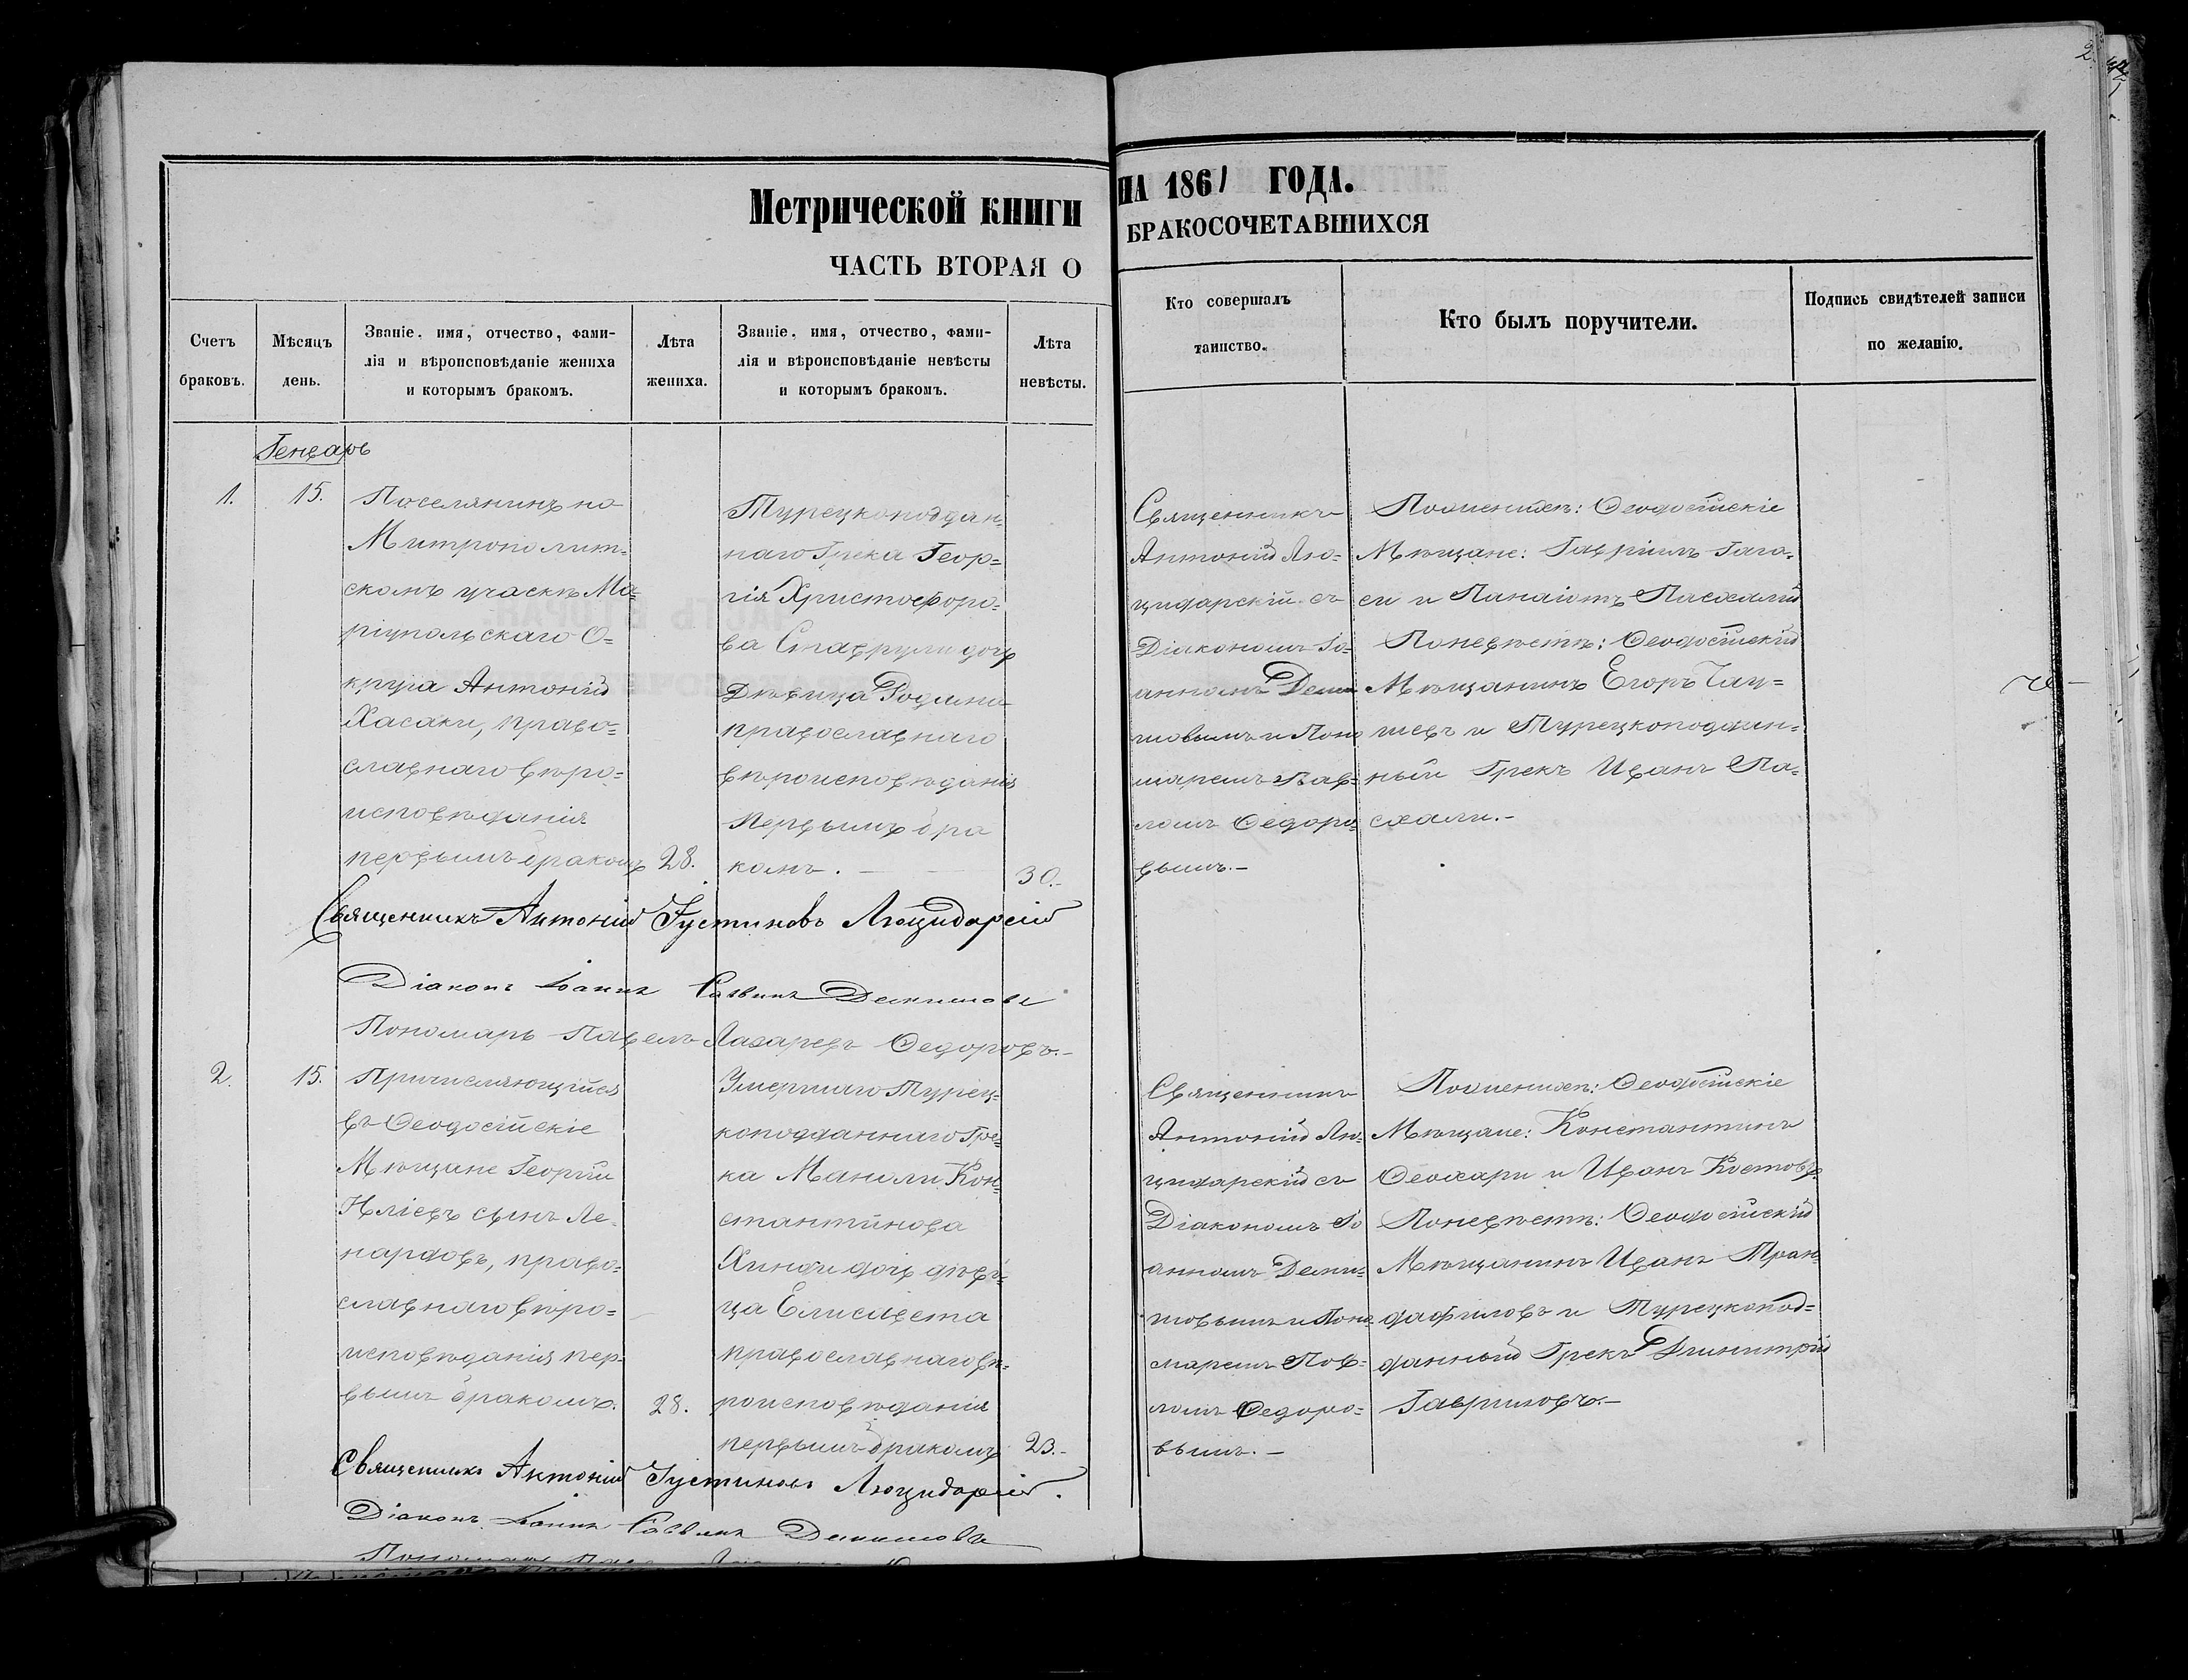 2.
Метрической книги
НА 1861 ГОДА.
ЧАСТЬ ВТОРАЯ О
БРАКОСОЧЕТАВШИХСЯ
Счетъ
браковъ.
Мѣсяцъ
день.
Званіе, имя, отчество, фами-
лія и вѣроисповѣданіе жениха
и которымъ бракомъ.
Лѣта
жениха.
Званіе, имя, отчество, фами-
лія и вѣроисповѣданіе невѣсты
и которымъ бракомъ.
Лѣта
невѣсты.
Кто совершалъ
таинство.
Кто былъ поручители.
Подпись свидѣтелей записи
по желанію.
Генварь
1.
15.
Поселянинъ на
Митрополит-
скомъ участкѣ Ма-
ріупольскаго О-
круга Антоній
Хасаки, право-
славнаго вѣро-
исповѣданія
первымъ бракомъ
28.
Турецкоподдан-
наго Грека Геор-
гія Христофоро-
ва Ставрули дочь
Дѣвица
православнаго
вѣроисповѣданія
первымъ бра
комъ.
30.
Священникъ
Антоній Лю-
цидарскій съ
Діакономъ Іо-
анномъ Деми
товымъ и Поно
маремъ Пав-
ломъ Ѳедоро-
вымъ.-
По женихѣ: Ѳеодосійскіе
Мѣщане: Гавріилъ Гага-
си и Панаіотъ Пасхалій
По невѣстѣ: Ѳеодосійскій
Мѣщанинъ Егоръ Чау-
шевъ и Турецкоподдан-
ный Грекъ Иванъ Па-
схали.-
Священникъ Антоній Іустиновъ Люцидарскій
Діаконъ Іоаннъ Саввинъ
Пономарь Павелъ Лазаревъ Ѳедоровъ.-
2.
15.
Причисляющійся
въ Ѳеодосійскіе
Мѣщане Георгій
Иліевъ сынъ Ле-
нардовъ, право-
славнаго вѣро-
исповѣданія пер-
вымъ бракомъ.
28.
Умершаго Турец-
коподданнаго Гре-
ка Маноли Кон-
стантинова
Хинди дочь дѣви-
ца Елисавета
православнаго вѣ-
роисповѣданія
первымъ бракомъ
23.-
Священникъ
Антоній Лю-
цидарскій съ
Діакономъ Іо
анномъ Деми-
товымъ и Поно
маремъ Пав-
ломъ Ѳедоро-
вымъ.-
По женихѣ: Ѳеодосійскіе
Мѣщане: Константинъ
Ѳеохари и Иванъ Костовъ.
По невѣстѣ: Ѳеодосійскій
Мѣщанинъ Иванъ Тран-
дафиловъ и Турецкопод-
данный Грекъ Димитрій
Гавриловъ.-
Священникъ Антоній Іустиновъ Люцидарскій.
Діаконъ Іоаннъ Саввинъ